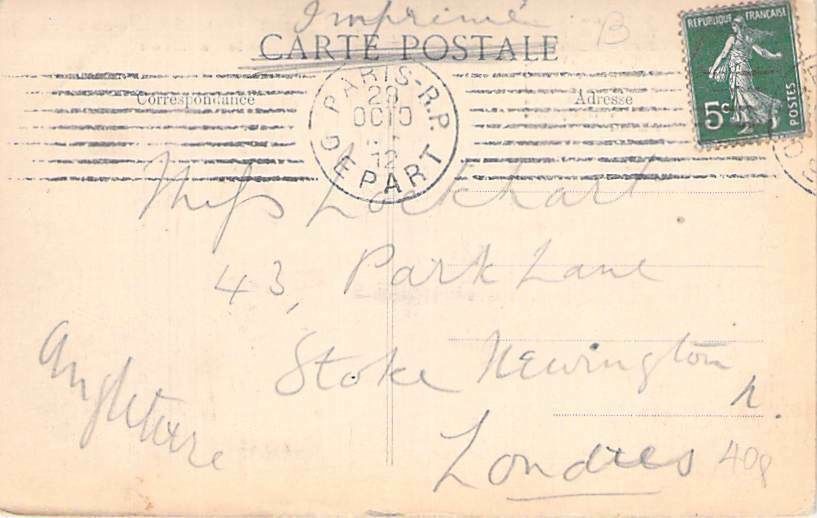 Imprimé
B
CARTE POSTALE
REPUBLIQUE FRANÇAISE
5c
POSTES
Correspondance
Adresse
PARIS-R.P.
28
OCTO
12
DEPART
Miss Lockhart.
43, Park Lane
Stoke Newington
N.
Angleterre
Londres